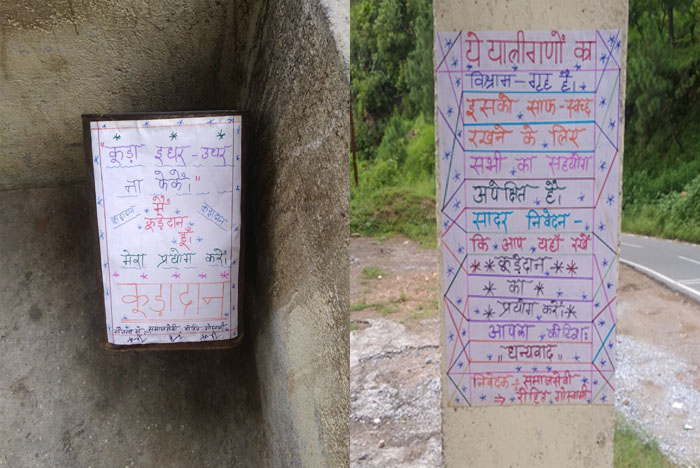 "कूड़ा इधर-उधर
ना फेकें।"
मैं
कूड़ेदान
कूड़ेदान
कूड़ेदान
हूँ।
मेरा प्रयोग करें।
कूड़ादान
समाजसेवी रोहित गोस्वामी
ये यात्रीगणों का
विश्राम-गृह है।
इसको साफ-स्वच्छ
रखने के लिए
सभी का सहयोग
अपेक्षित है।
सादर निवेदन-
कि आप यहाँ रखें
**कूड़ेदान**
का
प्रयोग करें।
आपका
"धन्यवाद"
निवेदक-समाजसेवी
⇒ रोहित गोस्वामी